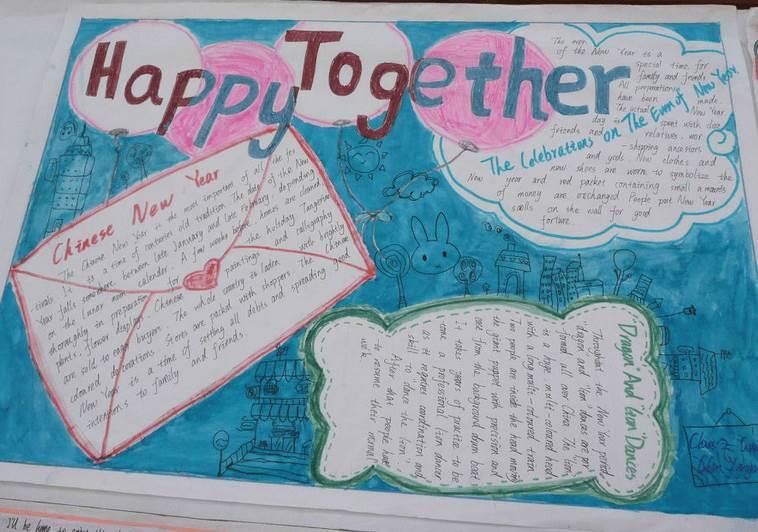 Happy Together
Chinese New Year
The Chinese New Year is the most important of all the fes
tivals It is a time of centuries old tradition The day of the New
Year falls somewhere between late January and late February, depending
on the lunar moon calender. A few weeks before homes are cleaned
thoroughly in preparation for the holiday Tangerian
plants, flower displays, Chinese paintings and calligraphy
are sold to eager buyers The whole country is laden with brightly
coloured decorations Stores are packed with shoppers The Chinese
New Year is a time of setting all debts and spreading good
intensions to family and friends.
The even
of the New Year is a
special time for
family and friends
All preparations
have been made.
The actual New Year
day spent with close
friends and relatives, wor
-shipping ancestors
and gods. New clothes and
new shoes are worn to symbolize the
New year and red packet containing small amounts
of money are exchanged People put New Year
scrolls on the wall for good
fortune
The Celebrations on The Even of New Year
"Dragon" And Lion "Dances
Throughout the New Year period,
"dragon and lion dances are per
-formed all over China The lion
is a huge multi-coloured head
with a long multi-coloured train
Two people are inside the head moving
the giant puppet with precision and
care from the background drum beat
It takes years of practise to be
come a professional lion dancer
as it requires coordination and
skill to "dance the lion".
After that people have
to resume their normal
work
Class